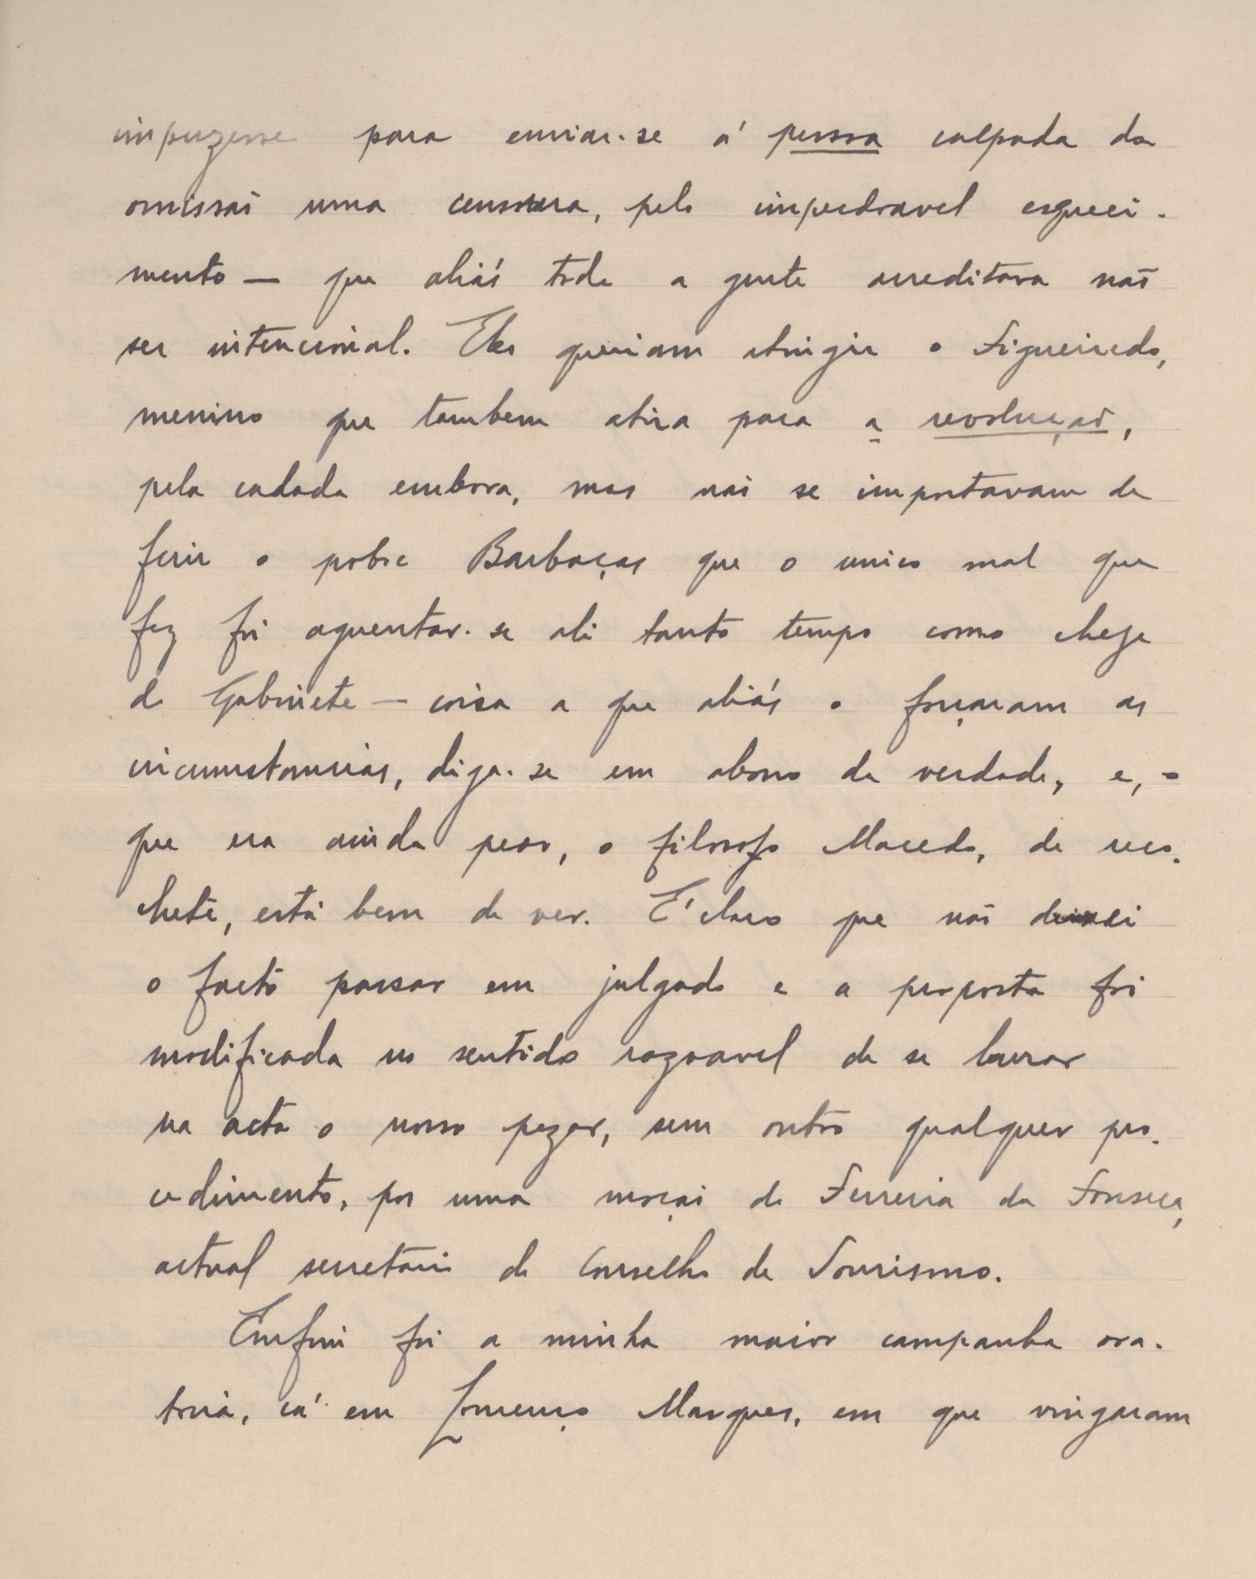 impuzesse para enviar-se á pessoa culpada da
omissão uma censura, pelo imperdoavel esqueci-
mento — que aliás toda a gente acreditava não
ser intencional. Eles queriam atingir o Figueiredo,
menino que tambem atira para a revolução,
pela calada embora, mas não se importavam de
ferir o pobre Barbaças que o unico mal que
fez foi aguentar-se ali tanto tempo como chefe
de Gabinete — coisa a que aliás o forçaram as
circumstancias, diga-se em abono da verdade, e, o
que era ainda peor, o filosofo Macedo, de rico-
chete, está bem de ver. É claro que não deixei
o facto passar em julgado e a proposta foi
modificada no sentido razoavel de se lavrar
na acta o nosso pezar, sem outro qualquer pro-
cedimento, por uma moção de Ferreira da Fonseca,
actual secretario do Conselho de Tourismo.
Emfim foi a minha maior campanha ora-
toria, cá em Lourenço Marques, em que vingaram